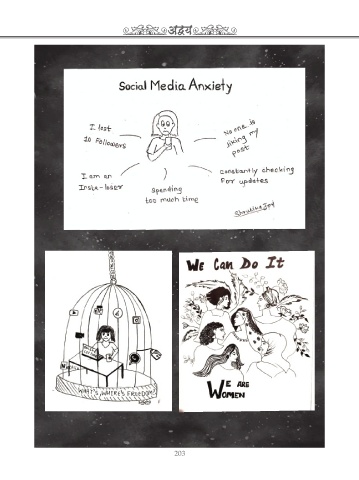 अद्वय
Social Media Anxiety
I lost
10 Followers
No one is
liking my
post
I am an
Insta-loser
Spending
too much time
constantly checking
For updates
WHAT'S, WHERE'S FREEDOM?
WE CAN DO IT
WE ARE
WOMEN
203